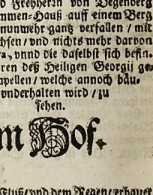 nd Freyherrn von Degenberg
mmen-Hauß auff einem Berg
nunmehr gantz zerfallen / mit
chsen / und nichts mehr darvon
. vnd die daselbst sich befin-
ren deß Heiligen Georgii ge-
apellen / welche annoch bäu-
vnderhalten wird / zu
sehen.
m Hof.
Fluß und dem Regen / erbauet